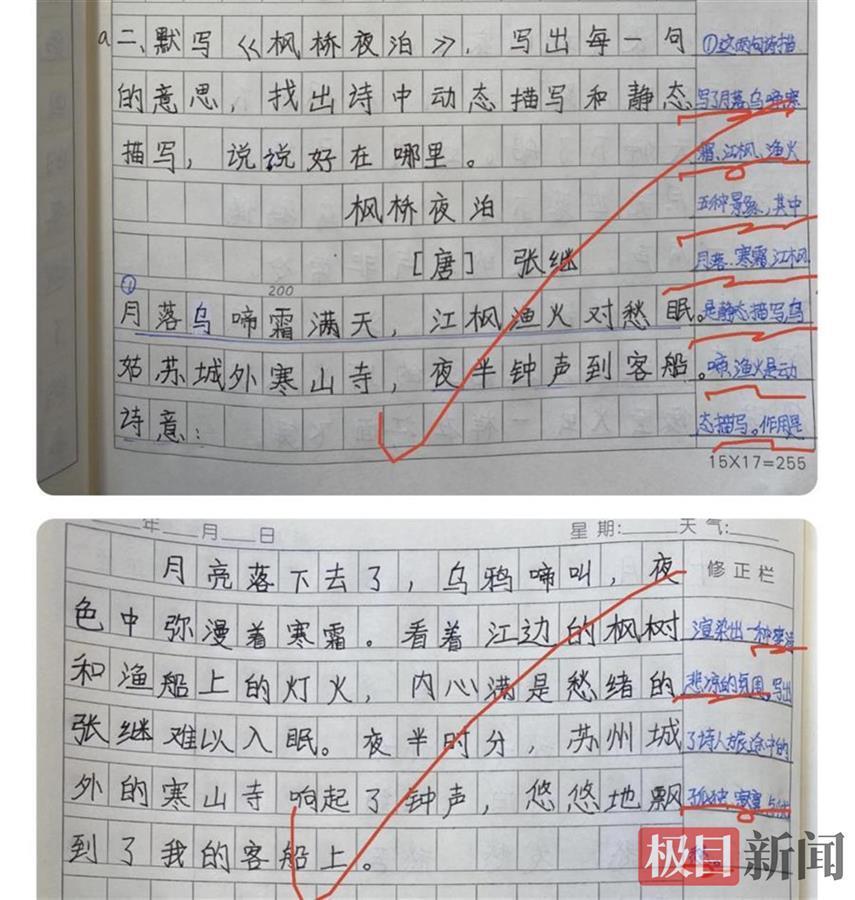 a二、默写《枫桥夜泊》，写出每一句
的意思，找出诗中动态描写和静态
描写，说说好在哪里。
枫桥夜泊
[唐] 张继
200
①
月落乌啼霜满天，江枫渔火对愁眠。
姑苏城外寒山寺，夜半钟声到客船。
诗意：
①这两句诗描
写了月落、乌啼、寒
霜、江枫、渔火
五种景象，其中
月落、寒霜、江枫
是静态描写，乌
啼、渔火是动
态描写。作用是
15X17=255
年 月 日
星期: 天气:
月亮落下去了，乌鸦啼叫，夜
色中弥漫着寒霜。看着江边的枫树
和渔船上的灯火，内心满是愁绪的
张继难以入眠。夜半时分，苏州城
外的寒山寺响起了钟声，悠悠地飘
到了我的客船上。
修正栏
渲染出一种凄清
悲凉的氛围，写出
了诗人旅途中的
孤独、寂寞与忧
愁。
极目新闻